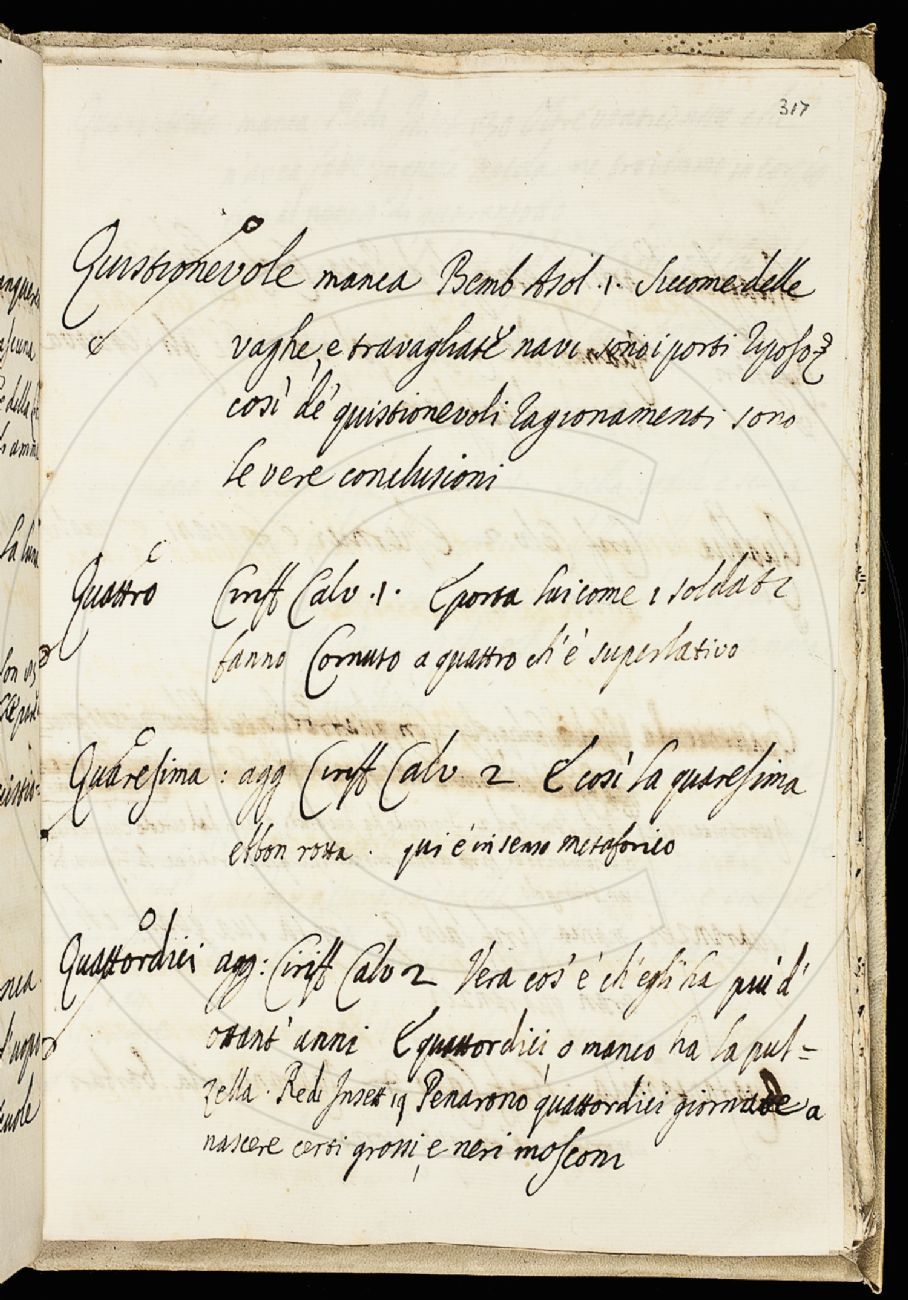 317
Quistionevole manca Bemb Asol .1. Siccome delle
vaghe, e travagliate navi sono i porti riposo,
così de' quistionevoli ragionamenti sono
le vere conclusioni
Quattro Ciriff Calv .1. E porta lui come i soldati
fanno Cornuto a quattro ch'è superlativo
Quaresima : agg Ciriff Calv 2 E così la quaresima
ebbon rotta . qui è in senso metaforico
Quattordici agg: Ciriff Calv 2 Vera cos' è ch'egli ha più d'
ottant' anni E quattordici, o manco ha la pul=
zella . Redi Insett 19 Penarono quattordici giornate a
nascere certi grossi, e neri mosconi